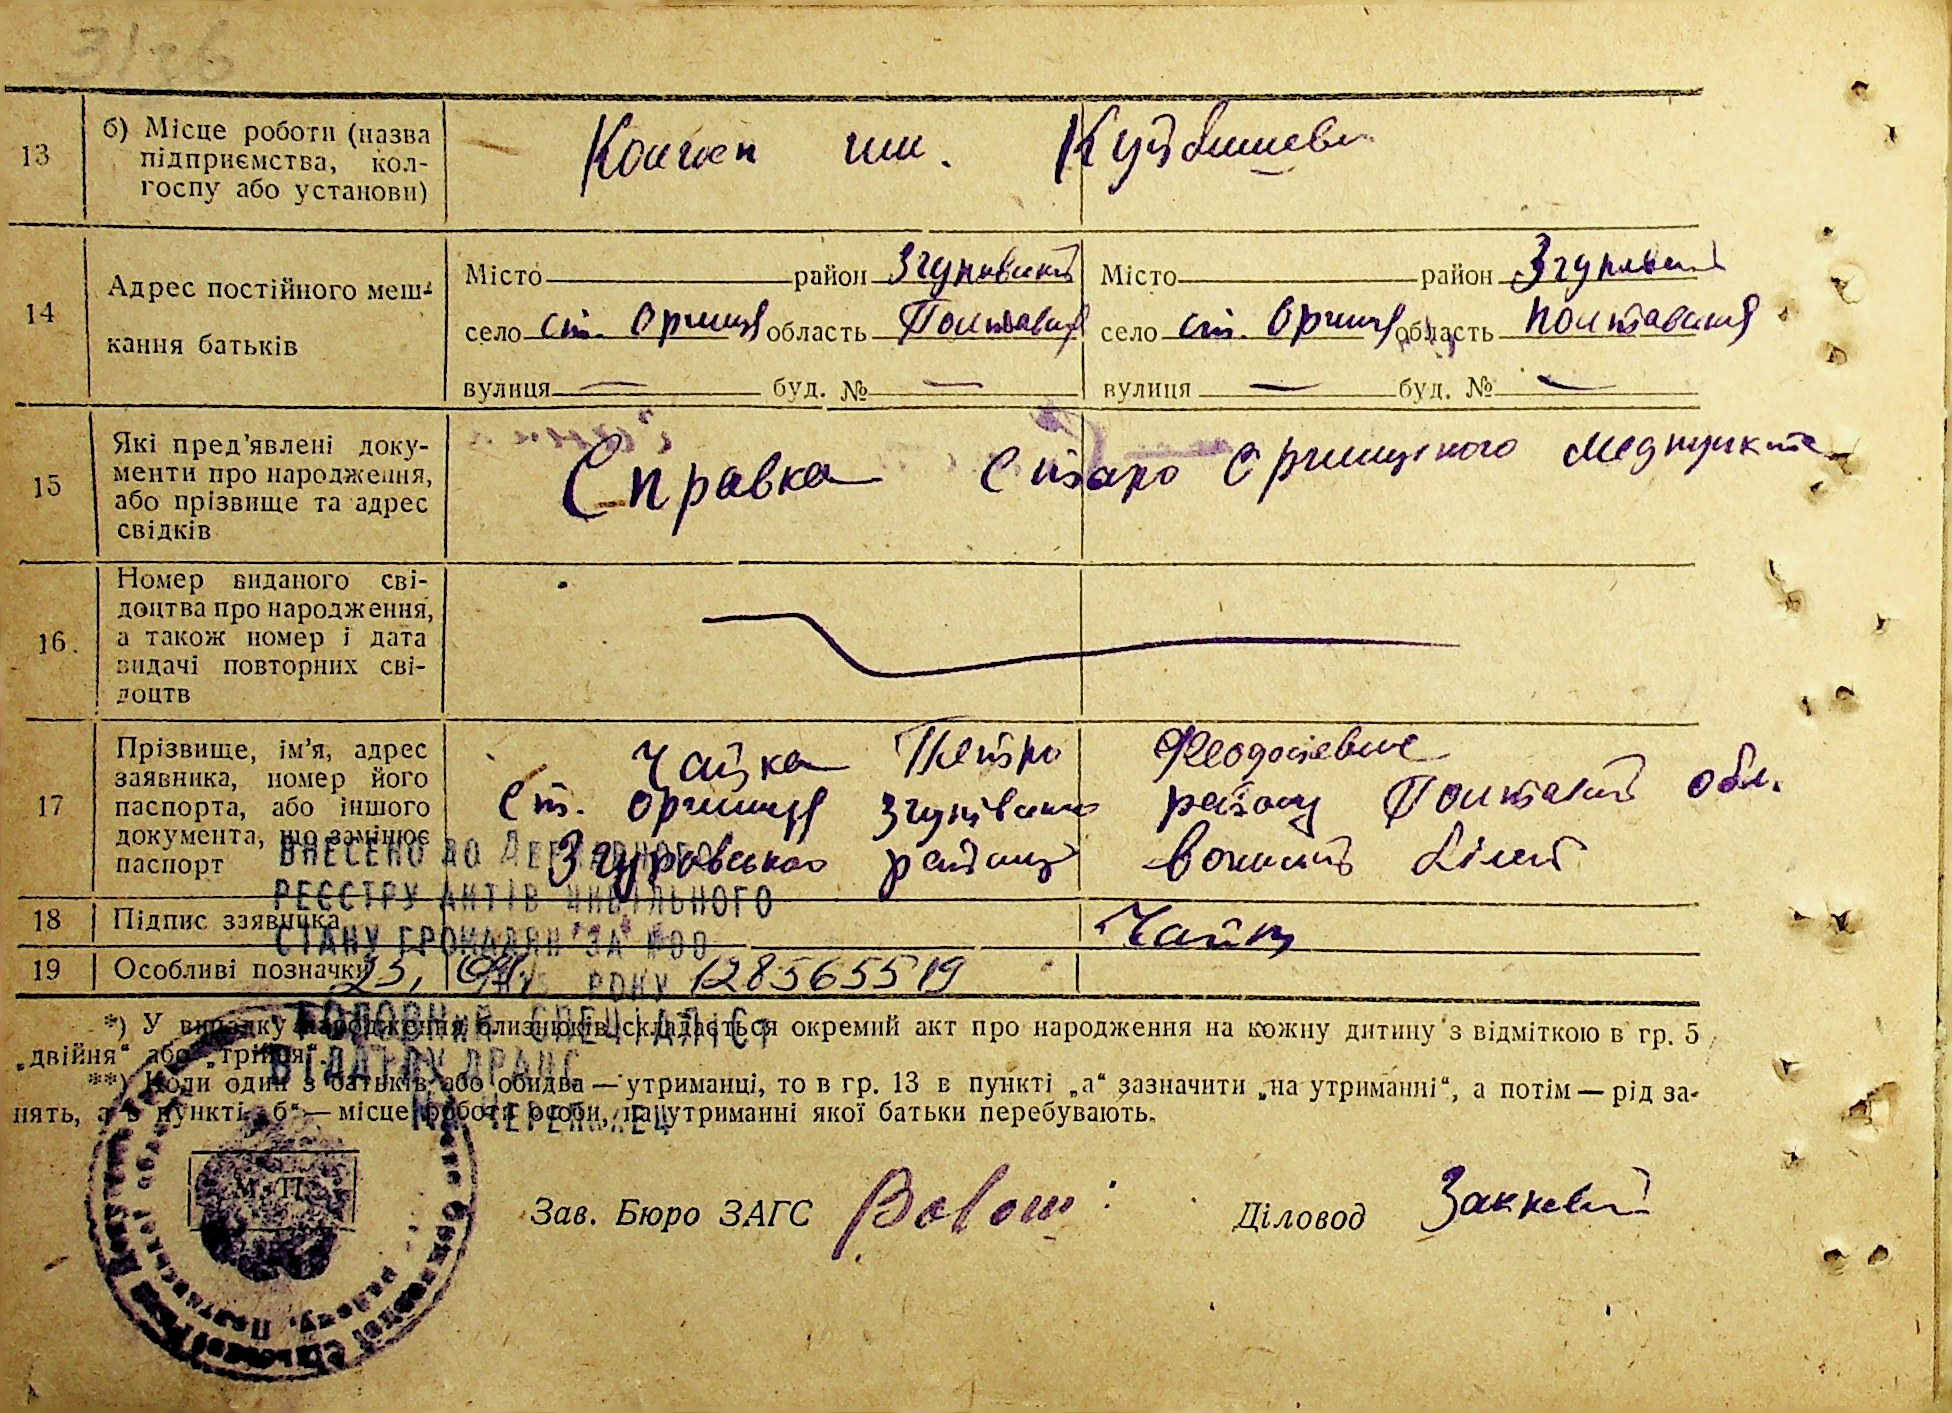 13
б) Місце роботи (назва
підприємства, кол-
госпу або установи)
Колгосп им. Куйбишева
14
Адрес постійного меш-
кання батьків
Місто район Згуровский Місто район Згуровский
село ст. Оржиця область Полтавская село ст. Оржиця область Полтавская
вулиця — буд. № — вулиця — буд. № —
15
Які пред’явлені доку-
менти про народження,
або прізвище та адрес
свідків
Справка Старо Оржицкого медпункта
16.
Номер виданого сві-
доцтва про народження,
а також номер і дата
видачі повторних сві-
доцтв
17
Прізвище, ім’я, адрес
заявника, номер його
паспорта, або іншого
документа, що замінює
паспорт
Чайка Петро Феодосієвич
Ст. Оржиця Згурівського району Полтавской обл.
Згуровською району воєнний білет
18
Підпис заявника
Чайка
19
Особливі позначки
ВНЕСЕНО ДО ДЕРЖАВНОГО
РЕЄСТРУ АКТІВ ЦИВІЛЬНОГО
СТАНУ ГРОМАДЯН ЗА №00
РОКУ 128565519
ГОЛОВНИЙ СПЕЦІАЛІСТ
ВІДДІЛУ ДРАЦС
*) У випадку народження близнюків складається окремий акт про народження на кожну дитину з відміткою в гр. 5
„двійня“ або „трійня“.
**) Коли один з батьків або обидва — утриманці, то в гр. 13 в пункті „а“ зазначити „на утриманні“, а потім — рід за-
нять, а в пункті „б“ — місце роботи особи, на утриманні якої батьки перебувають.
М. П.
Зав. Бюро ЗАГС Діловод